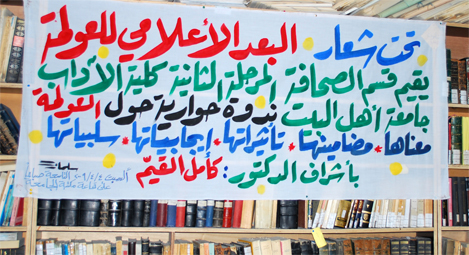 تحت شعار * البعد الأعلامي للعولمة
يقيم قسم الصحافة المرحلة الثانية كلية الآداب
جامعة أهل البيت ندوة حوارية حول العولمة
معناها * مضامينها * تأثيراتها * إيجابياتها * سلبياتها
بأشراف الدكتور: كامل القيّم